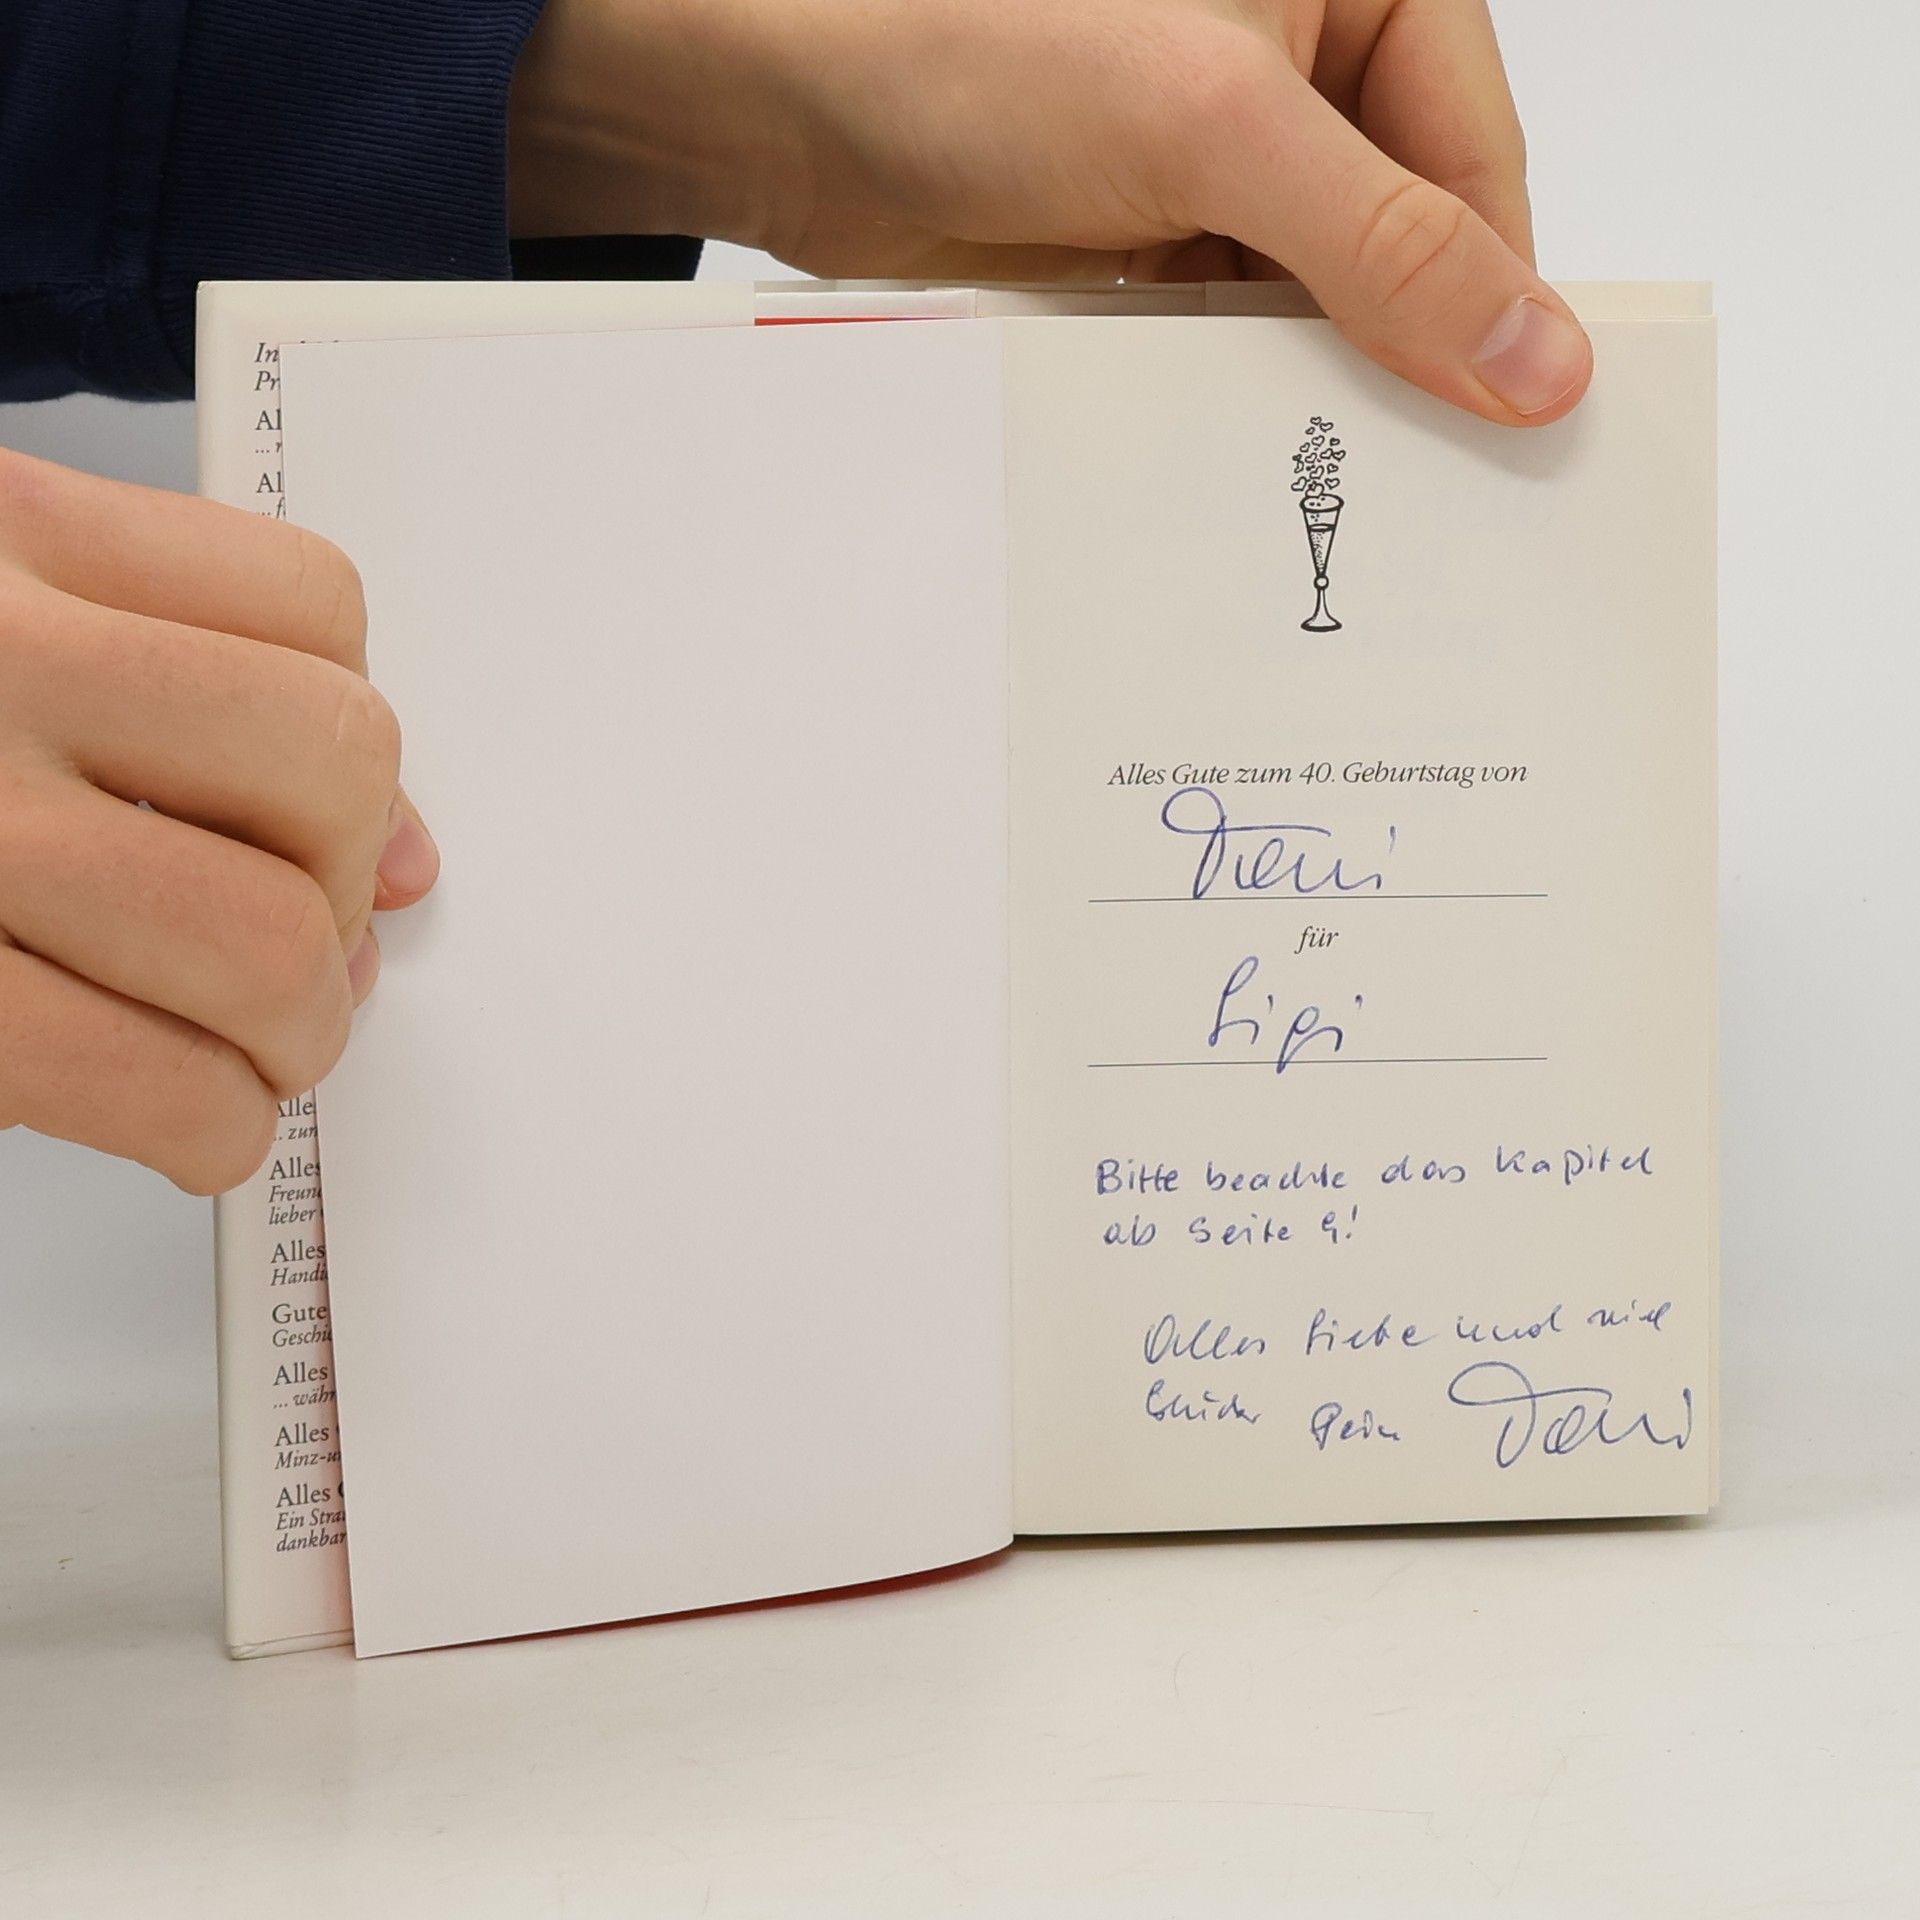 In
Pr
Al
Al
Alle
.. zum
Alles
Freun
lieber
Alles
Handi
Gute
Geschi
Alles
... währ
Alles
Minz-u
Alles
Ein Stra
dankbar
Alles Gute zum 40. Geburtstag von
für
Sigi
Bitte beachte das Kapitel
ab Seite 9!
Alles Liebe und viel
Dein